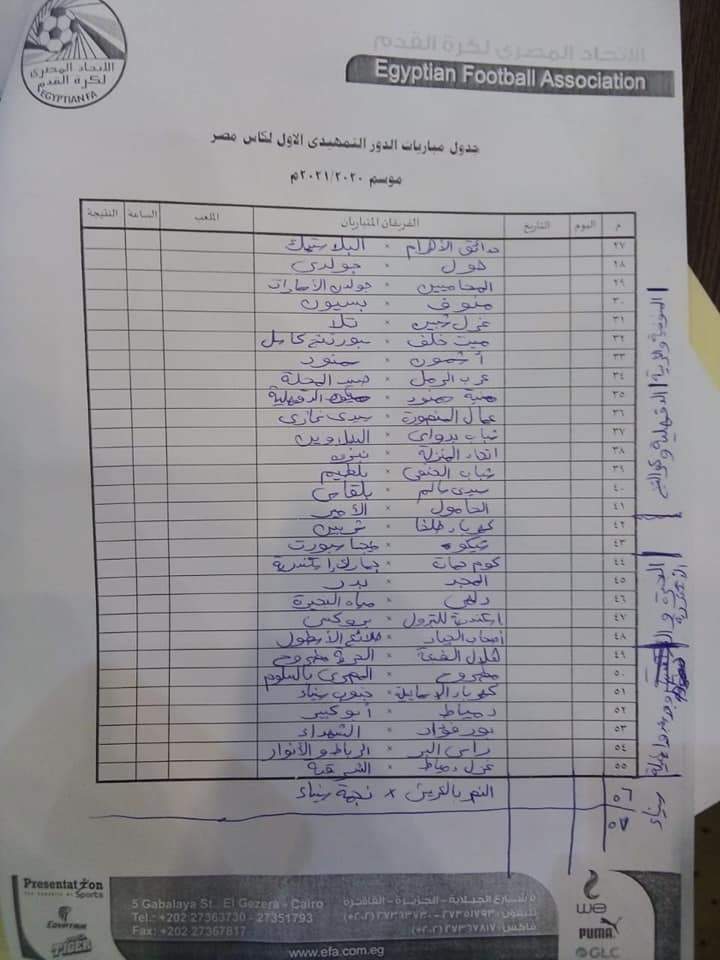 الاتحاد المصرى لكرة القدم
EGYPTIAN FA
الاتحاد المصرى لكرة القدم
Egyptian Football Association
جدول مباريات الدور التمهيدى الاول لكاس مصر
موسم ٢٠٢١/٢٠٢٠م
م اليوم التاريخ الفريقان المتباريان الملعب الساعة النتيجة
٢٧ حدائق الأهرام × البلاستيك
٢٨ هول × جولدى
٢٩ المحاميين × جولدن الأمارات
٣٠ منوف × بسيون
٣١ غزل شبين × تلا
٣٢ ميت خلف × سبورتنج كاسل
٣٣ أشمون × سمنود
٣٤ عرب الرمل × صيد المحلة
٣٥ منية سمنود × الدقهلية
٣٦ عمال المنصورة × سيدى غازى
٣٧ شباب بدواى × البلاروين
٣٨ اتحاد المنزلة × نبروه
٣٩ شباب الحنفى × بلطيم
٤٠ سيدى سالم × بلقاس
٤١ الحامول × الأمير
٤٢ كهرباء طلخا × شربين
٤٣ نيكوه × سبورت
٤٤ كوم حمادة × جمارك إسكندرية
٤٥ المجد × بدر
٤٦ دلهى × مياه البحيرة
٤٧ إسكندرية للبترول × بروكسى
٤٨ أصحاب الجياد × طلائع الأسطول
٤٩ هلال الضبعة × الحرية مطروح
٥٠ مطروح × المصرى بالسلوم
٥١ كهرباء الإسماعيلية × جنوب سيناء
٥٢ دمياط × أبو كبير
٥٣ بور فؤاد × الشهداء
٥٤ راس البر × الرباط والأنوار
٥٥ غزل دمياط × الشرقية
٥٦ النصر بالعريش × نجمة سيناء
٥٧
المنوفية والغربية
الدقهلية وكفر الشيخ
سيناء
Presentation
Sports
EGYPTAIR
TIGER
5 Gabalaya St. El Gezera - Cairo
Tel.: +202 27363730 - 27351793
Fax: +202 27367817
٥ شارع الجبلاية - الجزيرة - القاهرة
تليفون: ٢٧٣٥١٧٩٣ - ٢٧٣٦٣٧٣٠ (٢٠٢+)
فاكس: ٢٧٣٦٧٨١٧ (٢٠٢+)
www.efa.com.eg
we
PUMA
GLC